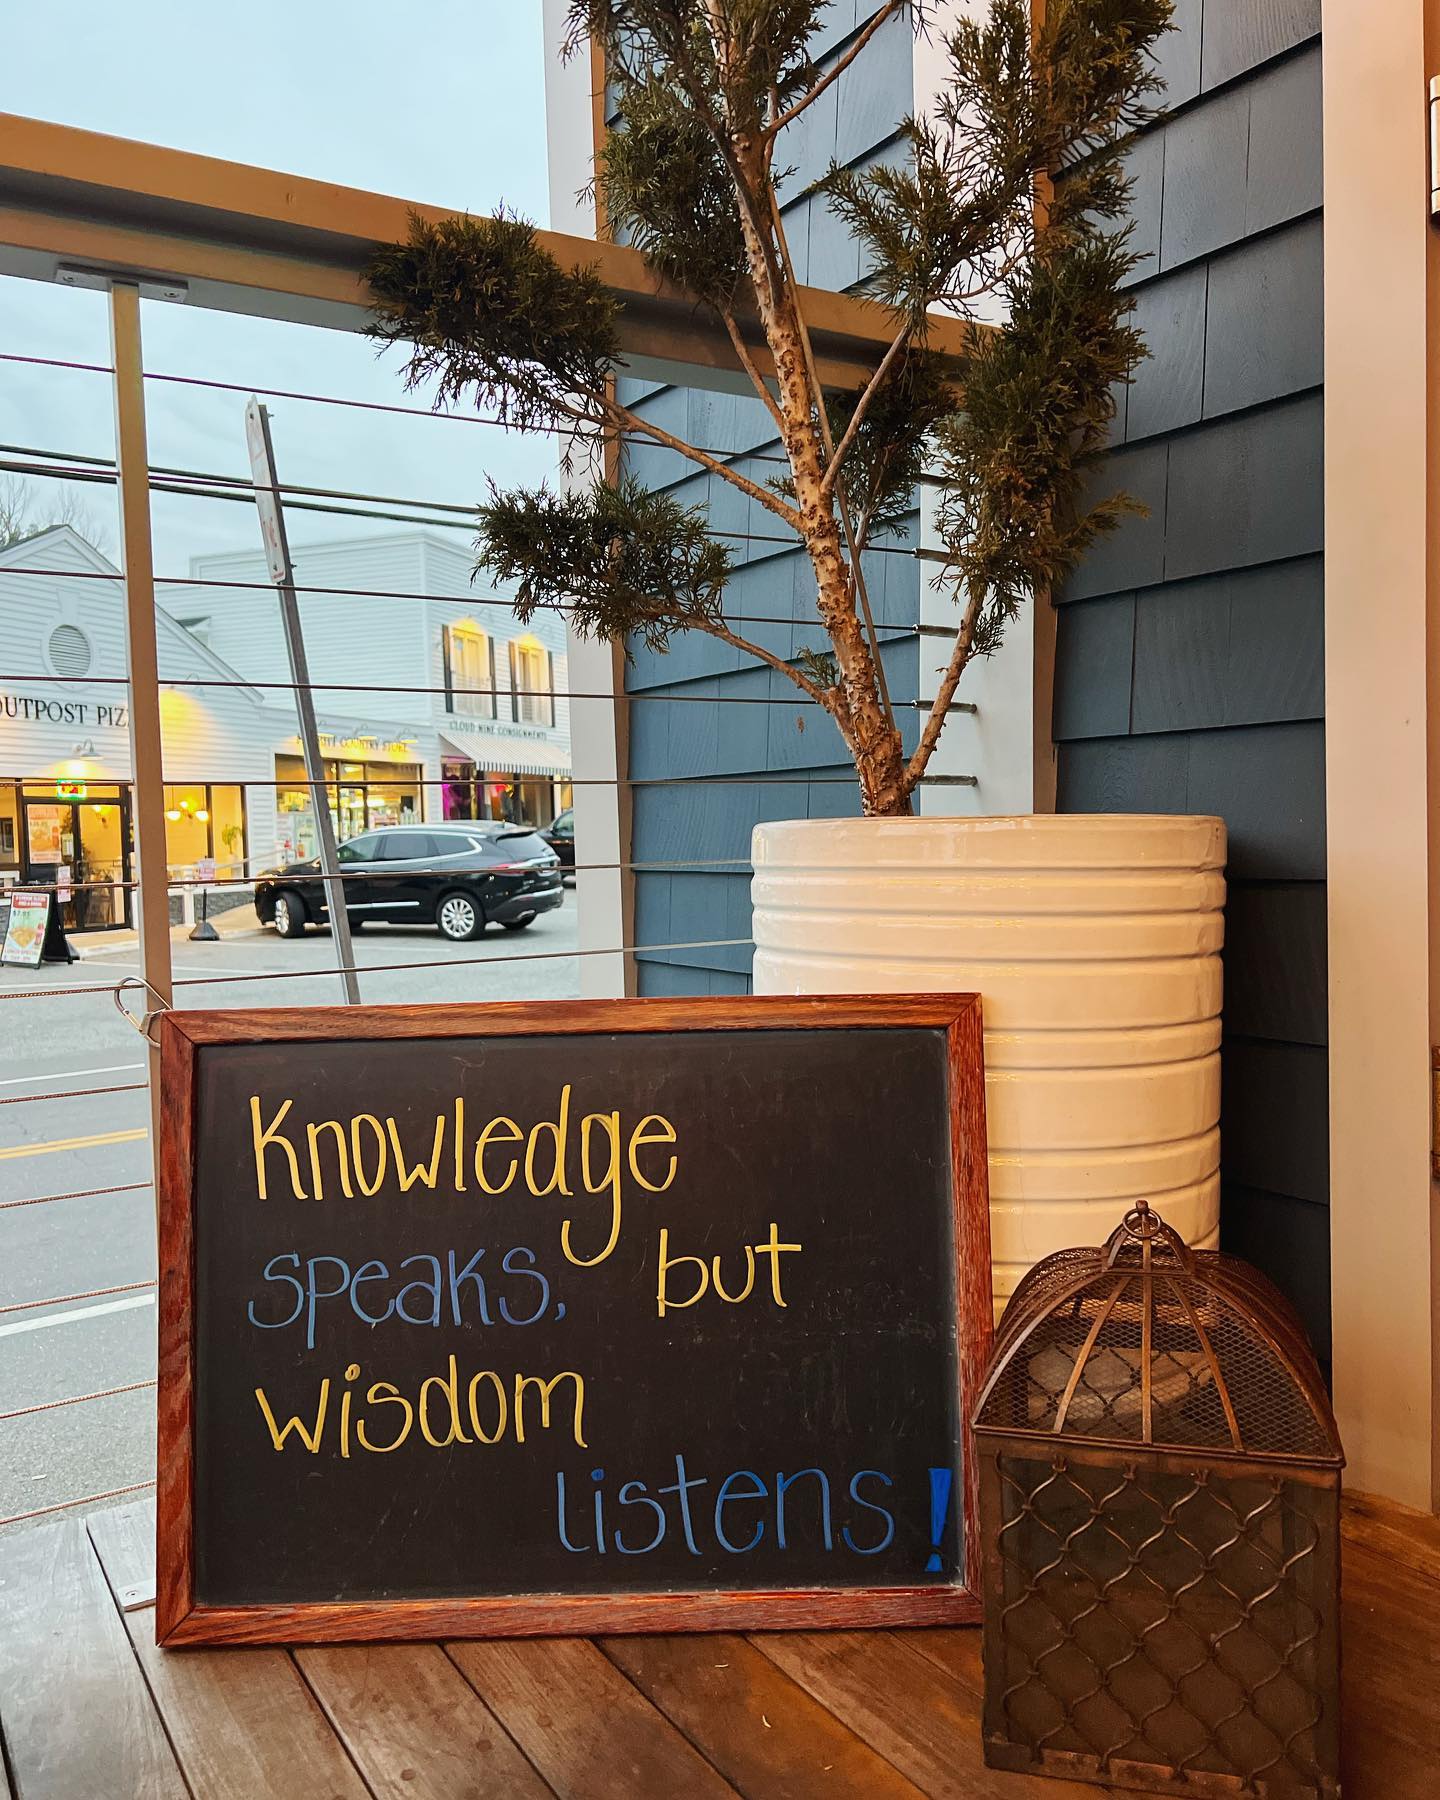 OUTPOST PIZ
COUNTRY STORE
CLOUD NINE CONSIGNMENTS
Knowledge
speaks, but
wisdom
listens!